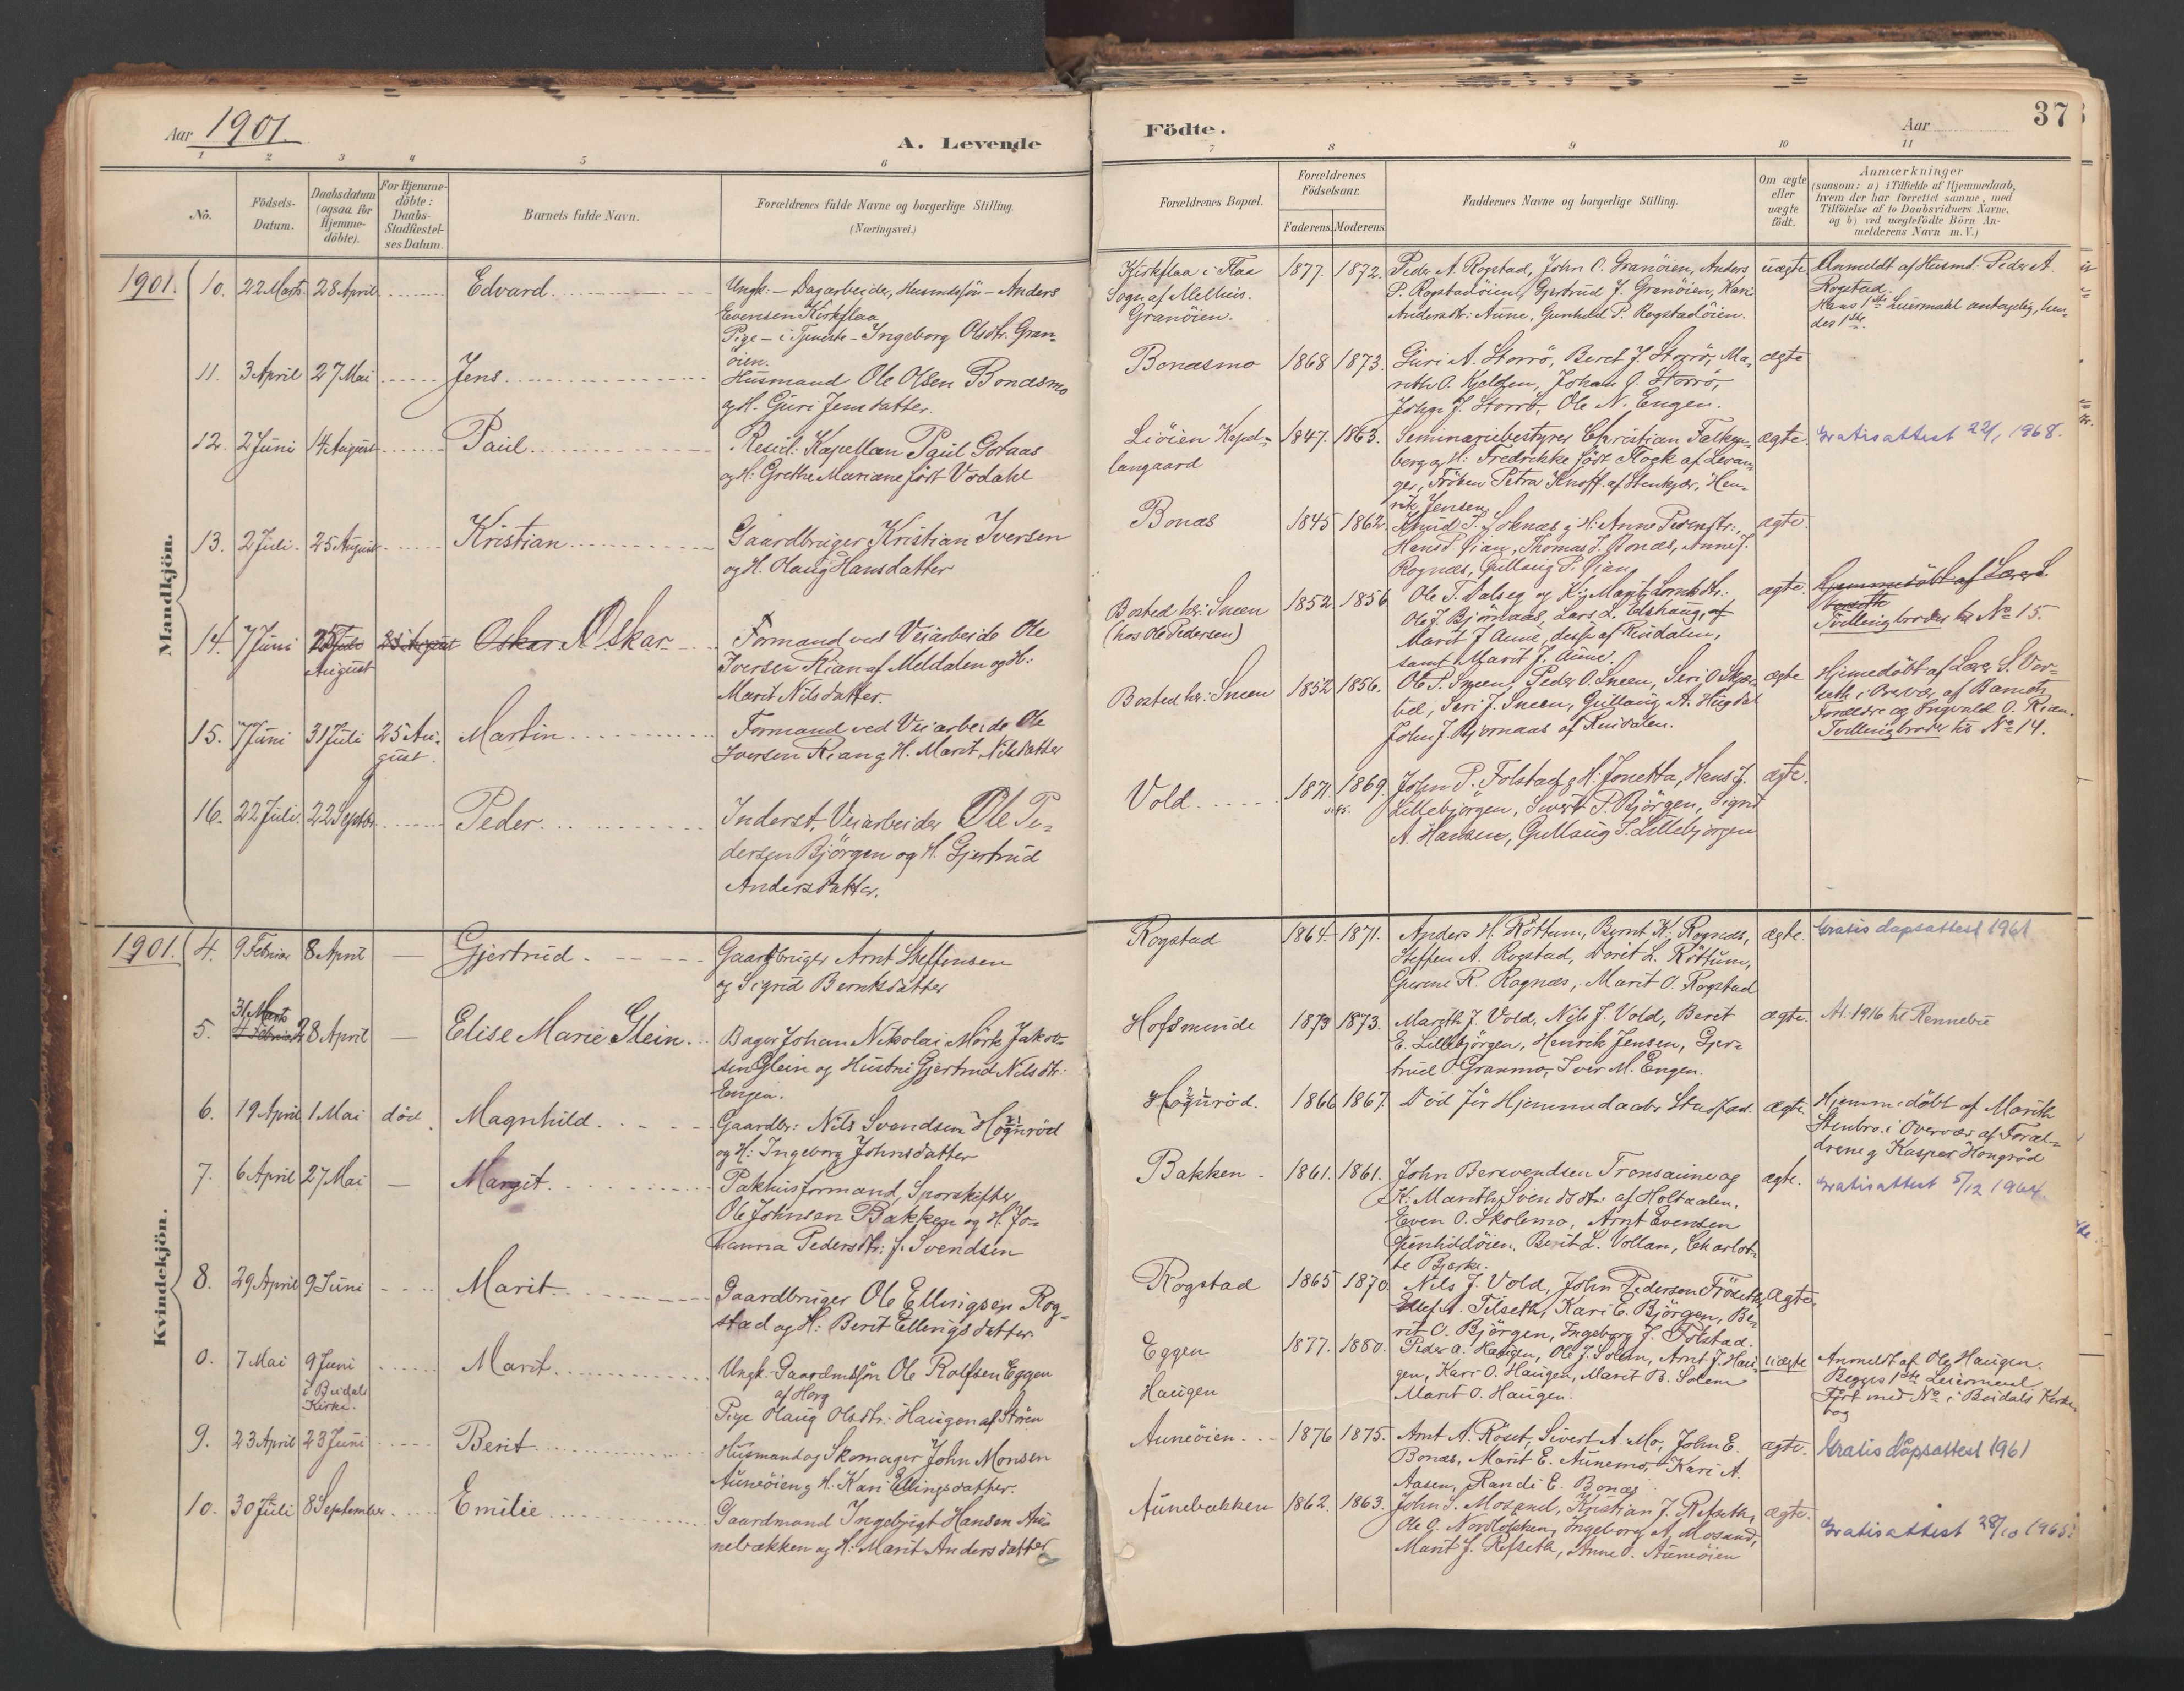 Aar 1901.
A. Levende
Födte.
Aar
37
1 2 3 4 5 6 7 8 9 10 11
No.
Födsels-
Datum.
Daabsdatum
(ogsaa for
Hjemme-
döbte).
For Hjemme-
döbte:
Daabs-
Stadfæstel-
ses Datum.
Barnets fulde Navn.
Forældrenes fulde Navne og borgerlige Stilling.
(Næringsvei.)
Forældrenes Bopæl.
Forældrenes
Födselsaar.
Faderens. Moderens.
Faddernes Navne og borgerlige Stilling.
Om ægte
eller
uægte
födt.
Anmærkninger
(saasom: a) i Tilfælde af Hjemmedaab,
hvem der har forrettet samme, med
Tilföielse af to Daabsvidners Navne,
og b) ved uægtefödte Börn An-
melderens Navn m.V.)
Mandkjön.
1901. 10. 22 Marts 28 April Edvard
Ungk. - Dagarbeider, Husmdssön - Anders
Evensen Kirkflaa
Pige - i Tjeneste - Ingeborg Olsdtr. Gran-
öien.
Kirkflaa i Flaa
Sogn af Melhus.
Granöien.
1877. 1872.
Peder A. Rogstad, John O. Granöien, Anders
P. Rogstadöien, Gjertrud J. Granöien, Kari
Andersdtr. Aune, Gunhild P. Rogstadöien.
uægte
Anmeldt af Husmd. Peder A.
Rogstad.
Hans 1ste Leiermaal antagelig, hen-
des 1ste.
11. 3 April 27 Mai Jens
Husmand Ole Olsen Bonæsmo
og H. Guri Jensdatter.
Bonæsmo
1868 1873.
Guri A. Storrö, Beret J. Storrö, Ma-
rith O. Kjelden, Johan J. Storrö,
John J. Storrö, Ole N. Engen.
ægte
12. 2 Juni 14 August Paul
Resid. Kapellan Paul Gotaas
og H. Grethe Mariane födt Vodahl
Liöien Kapel-
langaard
1847. 1863.
Seminariebestyrer Christian Falken-
berg og H. Fredrikke födt Flock af Levan-
ger, Fröken Petra Knoff af Stenkjær, Hen-
rik Jensen
ægte.
Gratisattest 22/1 1968.
13. 2 Juli. 25 August Kristian
Gaardbruger Kristian Iversen
og H. Olaug Hansdatter
Bonæs
1845 1862
Knud P. Soknæs og H. Anne Pedersdtr.,
Hans P. Rian, Thomas J. Bonæs, Anne J.
Rognæs, Gullaug P. Rian
ægte.
14. 7 Juni 25 Juli August 25 August Oskar Oskar
Formand ved Veiarbeide Ole
Iversen Rian af Meldalen og H.
Marit Nilsdatter.
Bosted hr. Sneen
(hos Ole Pedersen)
1852 1856
Ole T. Dalseg og K. Marit Larsdtr.
Ole J. Björnaas, Lars L. Elshaug, af
Marit J. Aune, desse af Rindalen,
samt Marit J. Aune.
ægte.
Hjemmedöbt af Lærer S.
Voseth
Tvillingbroder til No 15.
15. 7 Juni 31 Juli 25 Au-
gust. Martin
Formand ved Veiarbeide Ole
Iversen Rian og H. Marit Nilsdatter
Bosted hr. Sneen
1852 1856.
Ole P. Sneen, Peder O. Sneen, Seri O. Skjær-
lid, Seri J. Sneen, Gullaug A. Hugdal
John J. Bjørnaas af Rindalen.
ægte
Hjemmedöbt af Lærer S. Vor-
seth i Overvær af Barnets
Forældre og Ingvald O. Rian.
Tvillingbroder til No 14.
16. 22 Juli. 22 Septbr Peder
Inderst, Veiarbeider Ole Pe-
dersen Björgen og H. Gjertrud
Andersdatter.
Vold
1871. 1869.
John P. Folstad og H. Jonetta, Hans J.
Lillebjörgen, Sivert P. Björgen, Sigrid
A. Hansen, Gullaug S. Lillebjörgen
ægte.
Kvindekjön.
1901. 4. 9 Februar 8 April Gjertrud
Gaardbruger Arnt Steffensen
og Sigrid Berntsdatter
Rogstad
1864 1871.
Anders H. Röttum, Bernt K. Rognæs,
Steffen A. Rogstad, Dorit L. Röttum,
Gurine R. Rognæs, Marit O. Rogstad
ægte.
Gratis dåpsattest 1961
5. 31 Marts 11 Februar 28 April Elise Marie Glein
Bager Johan Nikolai Mörk Jakob-
sen Glein og Hustru Gjertrud Nilsdtr.
Engen.
Hofsminde
1873 1873.
Marith J. Vold, Nils J. Vold, Berit
E. Lillebjörgen, Henrik Jensen, Gjer-
trud O. Granmo, Iver M. Engen.
ægte.
At. 1916 til Rennebu
6. 19 April 1 Mai död. Magnhild
Gaardbr. Nils Svendsen Hognröd
og H. Ingeborg Johnsdatter
Hognröd.
1866 1867.
Död för Hjemmedaabs Stadfæst.
ægte.
Hjemmedöbt af Marith
Stenbro i Overvær af Foræl-
drene og Kasper Hongröd
7. 6 April 27 Mai Margit
Pakhusformand, Sporskifter
Ole Johnsen Bakken og H. Jo-
hanna Pedersdtr. f. Svendsen
Bakken
1861. 1861.
John Bersvendsen Tronsaune og
K. Marith Svendsdtr. af Holtaalen,
Even O. Skolemo, Arnt Evensen
Gunhildöien, Berit L. Vollan, Charlot-
te Bjerke.
ægte.
Gratisattest 5/12 1964.
8. 29 April 9 Juni Marit
Gaardbruger Ole Ellingsen Rog-
stad og H. Berit Ellingsdatter
Rogstad
1865 1870
Nils J. Vold, John Pedersen Fröseth,
Ellef A. Tilseth, Kari E. Björgen, Be-
rit O. Björgen, Ingeborg J. Folstad.
ægte.
0. 7 Mai 9 Juni
i Budals
Kirke. Marit
Ungk. Gaardmdssön Ole Rolfsen Eggen
af Horg
Pige Olaug Olsdtr. Haugen af Stören
Eggen
Haugen
1877. 1880.
Peder A. Haugen, Ole J. Solem, Arnt J. Hau-
gen, Kari O. Haugen, Marit B. Solem
Marit O. Haugen.
uægte
Anmeldt af Ole Haugen.
Begges 1ste Leiermaal
Fört med No i Budals Kirke-
bog
9. 23 April 23 Juni Berit
Husmand og Skomager John Monsen
Auneöien og H. Kari Ellingsdatter.
Auneöien
1876 1875.
Arnt A. Röset, Sivert A. Mo, John E.
Bonæs, Marit E. Aunemo, Kari A.
Aasen, Randi E. Bonæs
ægte.
Gratis dåpsattest 1961
10. 30 Juli 8 September Emilie
Gaardmand Ingebrigt Hansen Au-
nebækken og H. Marit Andersdatter
Aunebækken
1862. 1863.
John S. Mosand, Kristian J. Refseth,
Ole O. Nordlökken, Ingeborg A. Mosand,
Marit J. Refseth, Anne O. Auneöien
ægte.
Gratisattest 28/10 1965.